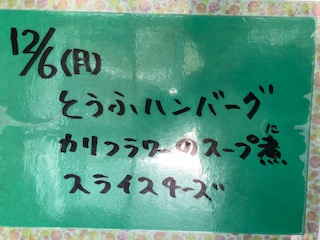 12/6(月)
とうふハンバーグ
カリフラワーのスープ煮に
スライスチーズ